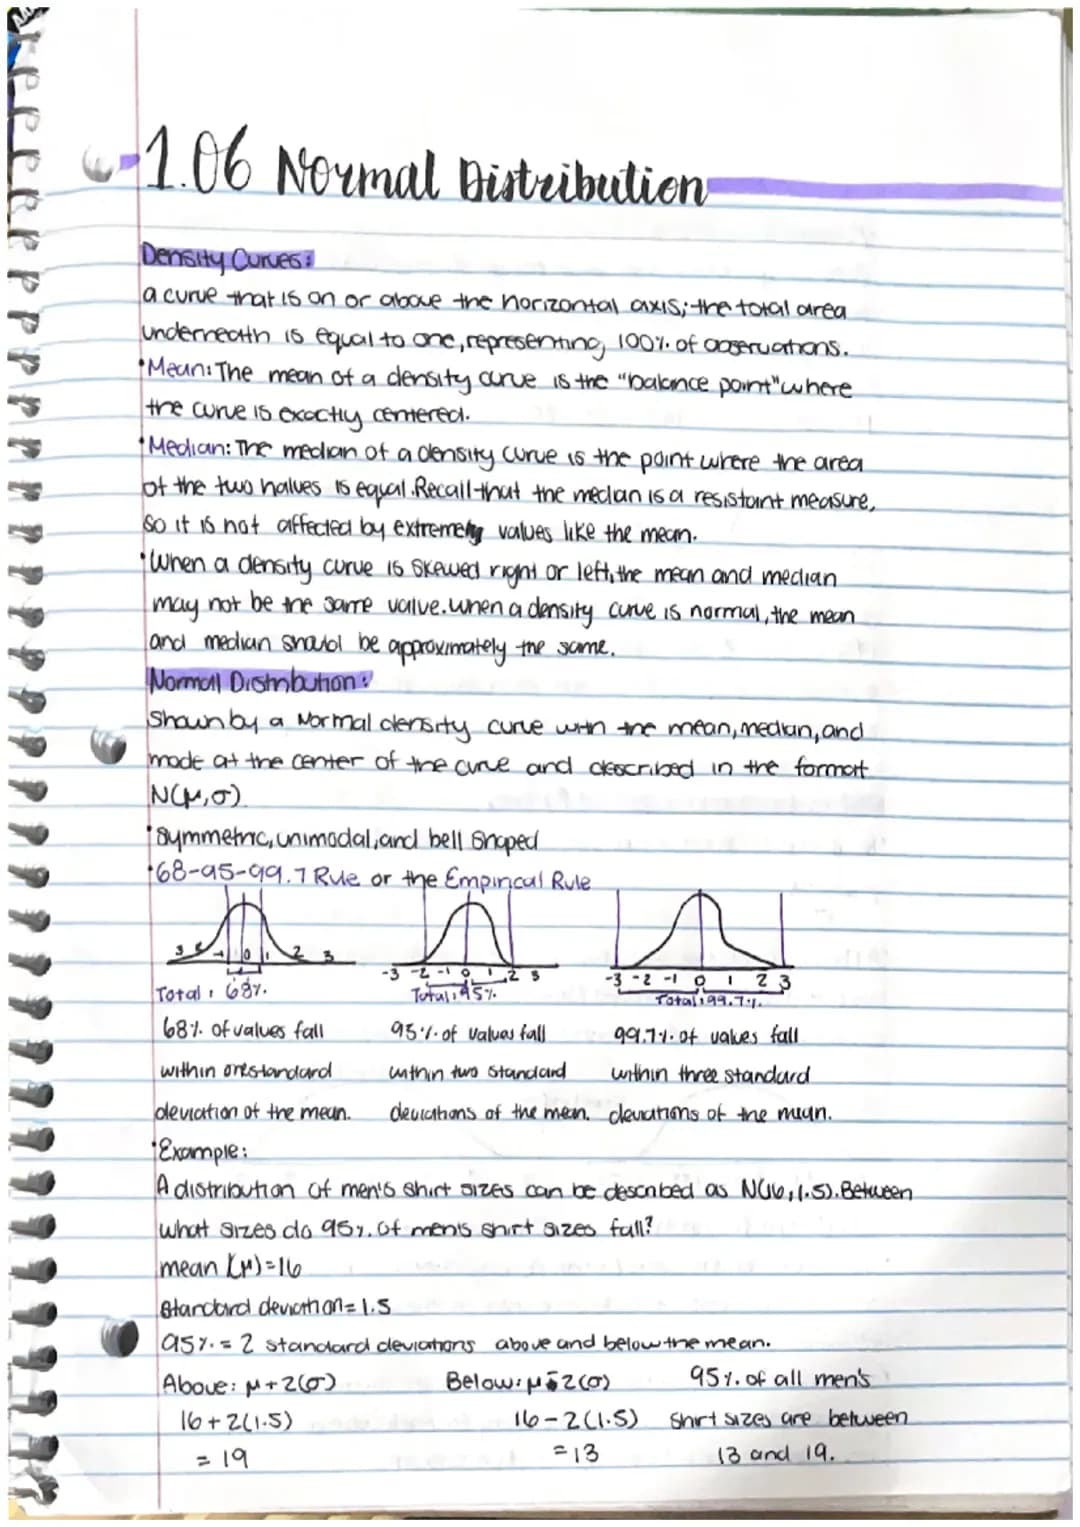 1.06 Normal Distribution
Density Curves:
a curve that is on or above the horizontal axis; the total area
underneath is equal to one, representing 100% of observations.
• Mean: The mean of a density curve is the "balance point" where
the curve is exactly centered.
• Median: The median of a density curve is the point where the area
of the two halves is equal. Recall that the median is a resistant measure,
so it is not affected by extremely values like the mean.
• When a density curve is skewed right or left, the mean and median
may not be the same value. When a density curve is normal, the mean
and median should be approximately the same.
Normal Distribution:
Shown by a Normal density curve with the mean, median, and
mode at the center of the curve and described in the format
N(μ,σ)
• Symmetric, unimodal, and bell shaped
• 68-95-99.7 Rule or the Empirical Rule
3 -1 0 1 2 3
-3 -2 -1 0 1 2 3
-3 -2 -1 0 1 2 3
Total: 68%
Total: 95%
Total: 99.7%
68% of values fall
within one standard
deviation of the mean.
95% of values fall
within two standard
deviations of the mean.
99.7% of values fall
within three standard
deviations of the mean.
• Example:
A distribution of men's shirt sizes can be described as N(16,1.5). Between
what sizes do 95% of men's shirt sizes fall?
mean (μ)=16
Standard deviation=1.5
95% = 2 standard deviations above and below the mean.
Above: μ+2(σ)
16+2(1.5)
= 19
Below: μ-2(σ)
16-2(1.5)
=13
95% of all men's
shirt sizes are between
13 and 19.